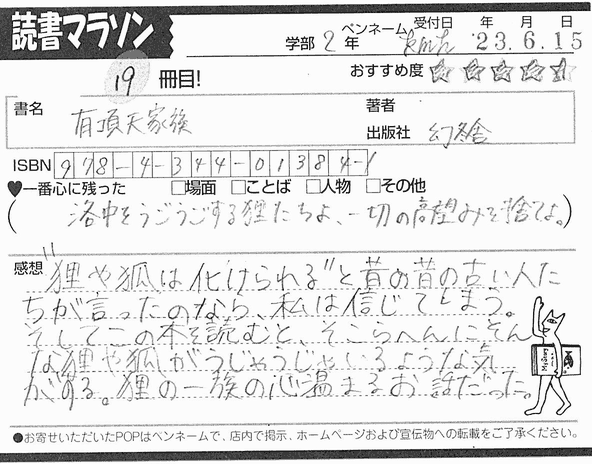 読書マラソン
学部 2 年 ペンネーム 受付日 年 月 日
'23.6.15
19 冊目!
おすすめ度 ☆☆☆☆☆
書名 有頂天家族
著者
出版社 幻冬舎
ISBN 978-4-344-01384-1
♥一番心に残った □場面 □ことば □人物 □その他
(洛中をうごうごする狸たちよ、一切の高望みを捨てよ。)
感想 "狸や狐は化けられる"と昔の昔の古い人た
ちが言ったのなら、私は信じてしまう。
そしてこの本を読むと、そこらへんにそん
な狸や狐がうじゃうじゃいるような気
がする。狸の一族の心温まるお話だった。
●お寄せいただいたPOPはペンネームで、店内で掲示、ホームページおよび宣伝物への転載をご了承ください。